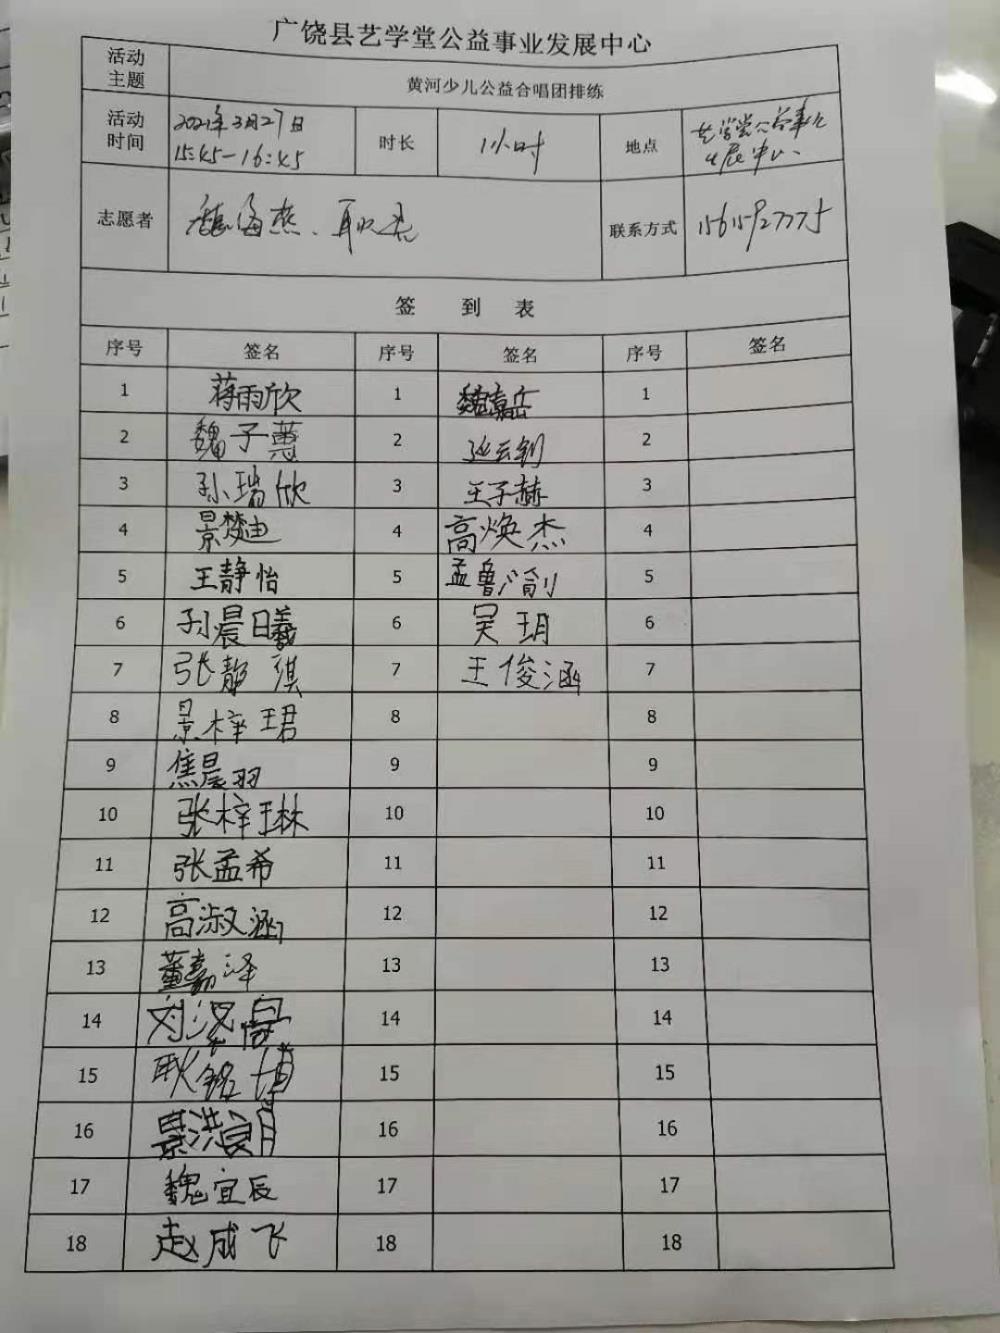 广饶县艺学堂公益事业发展中心
活动主题 黄河少儿公益合唱团排练
活动时间 2021年3月27日 15:45-16:45 时长 1小时 地点 艺学堂公益事业发展中心
志愿者 魏海燕、耿 联系方式 15615927775
签到表
序号 签名 序号 签名 序号 签名
1 蒋雨欣 1 魏嘉岳 1
2 魏子蕙 2 张云钊 2
3 孙瑞欣 3 王子赫 3
4 景楚迪 4 高焕杰 4
5 王静怡 5 孟鲁渝 5
6 孙晨曦 6 吴玥 6
7 张靓淇 7 王俊涵 7
8 景梓珺 8 8
9 焦晨羽 9 9
10 张梓琳 10 10
11 张孟希 11 11
12 高淑涵 12 12
13 董嘉泽 13 13
14 刘 14 14
15 耿铭博 15 15
16 景洪朗 16 16
17 魏宜辰 17 17
18 赵成飞 18 18